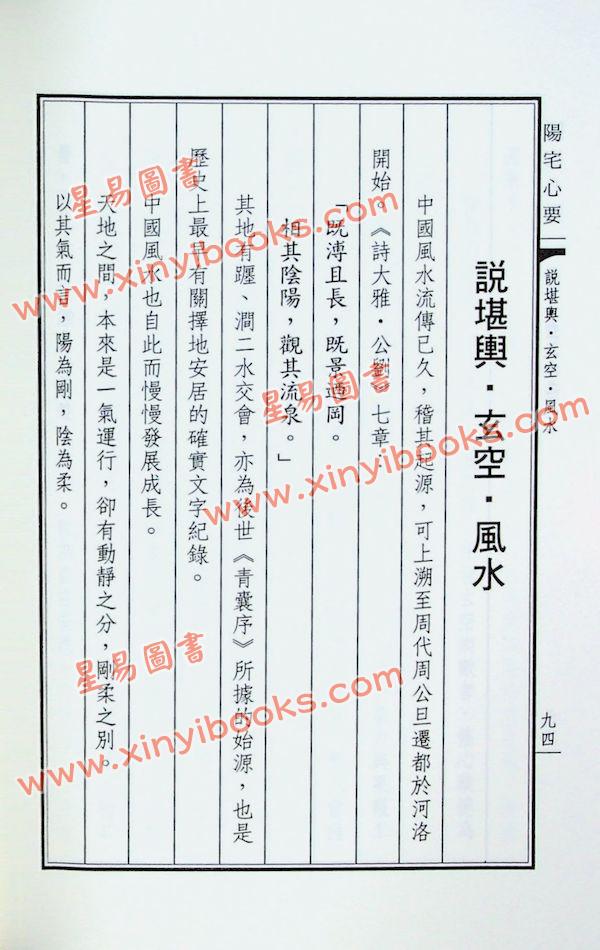 陽宅心要
說堪輿·玄空·風水
九四
說堪輿·玄空·風水
中國風水流傳已久，稽其起源，可上溯至周代周公旦遷都於河洛
開始。《詩大雅·公劉》七章：
「既溥且長，既景迺岡。
相其陰陽，觀其流泉。」
其地有瀍、澗二水交會，亦為後世《青囊序》所據的始源，也是
歷史上最早有關擇地安居的確實文字紀錄。
中國風水也自此而慢慢發展成長。
天地之間，本來是一氣運行，卻有動靜之分，剛柔之別。
以其氣而言，陽為剛，陰為柔。
星易圖書
www.xinyibooks.com
星易圖書
www.xinyibooks.com
星易圖書
www.xinyibooks.com